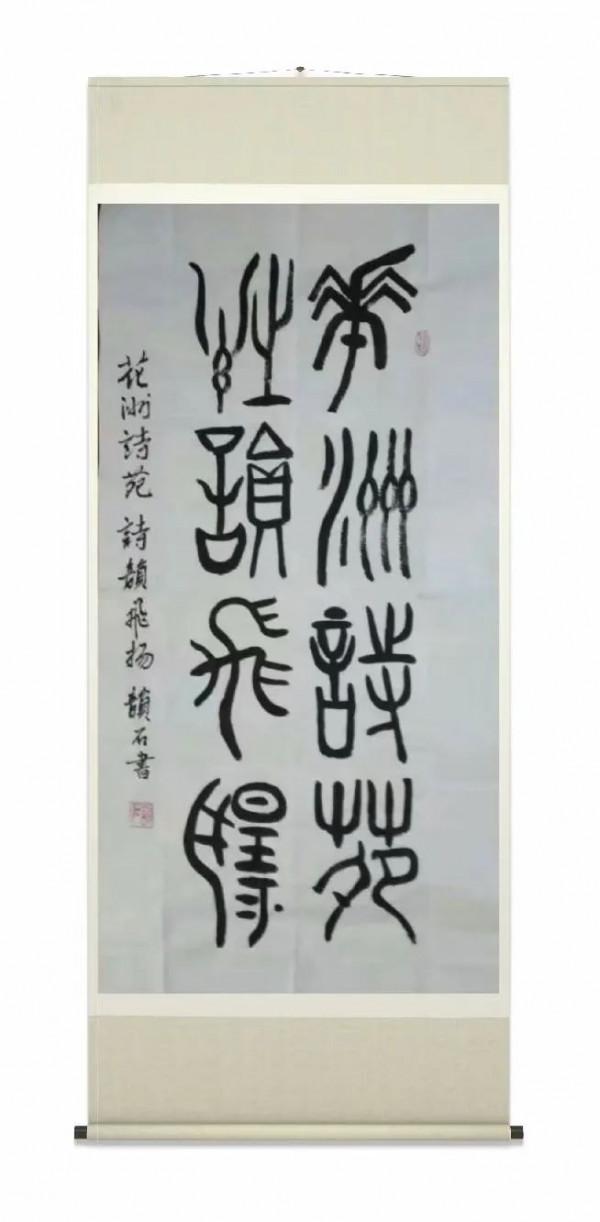 花洲詩苑
詩韻飛揚
花洲詩苑 詩韻飛扬 韻石書